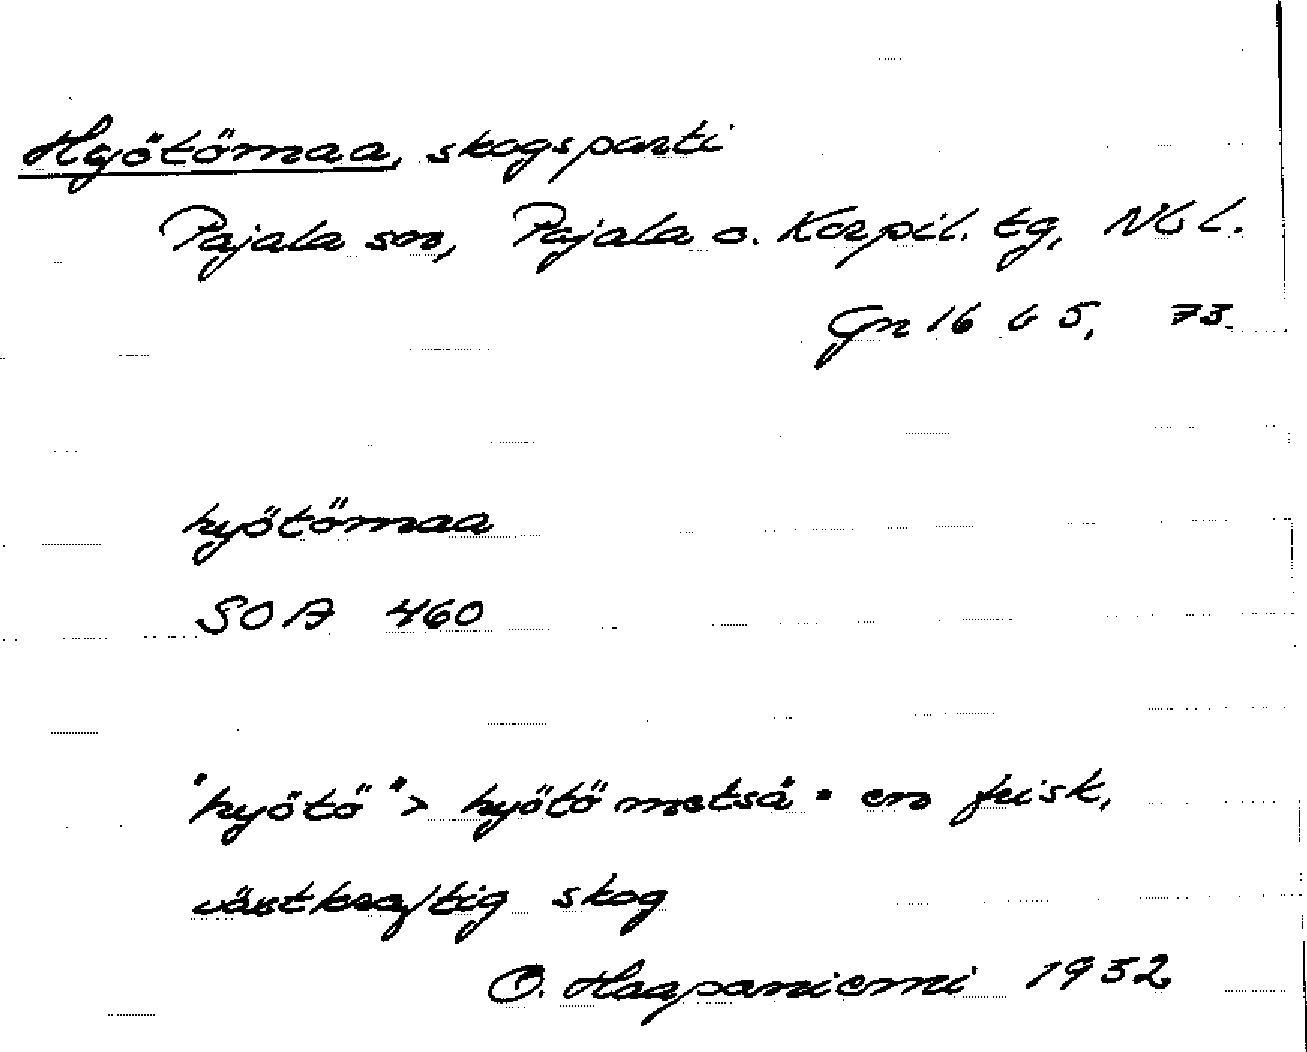 Hyötömaa, skogsparti
Pajala sn, Pajala o. Korpil. tg, Nb l.
Gn 16 b 5, 73.
hyötömaa
SOA 460
"hyötö" > hyötö metsä = en frisk,
växtkraftig skog
O. Haapaniemi 1932